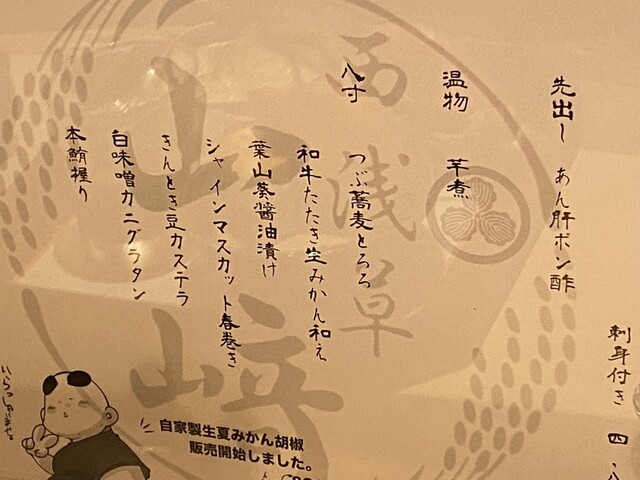 先出し あん肝ポン酢
温物 芋煮
八寸 つぶ蕎麦とろろ
和牛たたき生みかん和え
葉山葵醤油漬け
シャインマスカット春巻き
きんとき豆カステラ
白味噌カニグラタン
本鮪握り
刺身付き 四・八
西浅草
山﨑
いらっしゃいませ。
自家製生夏みかん胡椒
販売開始しました。